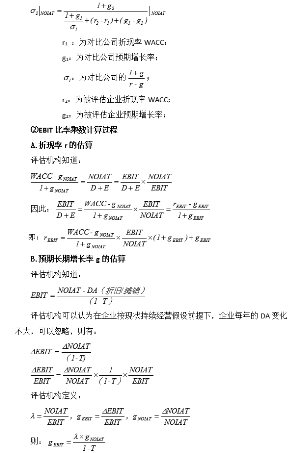 σ₂|NOIAT = (1+g₂) / ((1+g₁)/σ₁ + (r₂-r₁) + (g₁-g₂)) |NOIAT
r₁：为对比公司折现率 WACC;
g₁：为对比公司预期增长率;
σ₁：为对比公司的 (1+g)/(r-g);
r₂：为被评估企业折现率 WACC;
g₂：为被评估企业预期增长率;
②EBIT 比率乘数计算过程
A. 折现率 r 的估算
评估机构知道:
(WACC - g_NOIAT)/(1+g_NOIAT) = NOIAT/(D+E) = EBIT/(D+E) × NOIAT/EBIT
因此: EBIT/(D+E) = (WACC - g_NOIAT)/(1+g_NOIAT) × EBIT/NOIAT = (r_EBIT - g_EBIT)/(1+g_EBIT)
即: r_EBIT = (WACC - g_NOIAT)/(1+g_NOIAT) × EBIT/NOIAT × (1+g_EBIT) + g_EBIT
B. 预期长期增长率 g 的估算
评估机构知道,
EBIT = (NOIAT - DA（折旧/摊销）)/(1-T)
评估机构可以认为在企业按现状持续经营假设前提下，企业每年的 DA 变化
不大，可以忽略，则有。
ΔEBIT = ΔNOIAT/(1-T)
ΔEBIT/EBIT = ΔNOIAT/NOIAT × 1/(1-T) × NOIAT/EBIT
评估机构定义,
λ = NOIAT/EBIT, g_EBIT = ΔEBIT/EBIT, g_NOIAT = ΔNOIAT/NOIAT
则: g_EBIT = (λ × g_NOIAT)/(1-T)